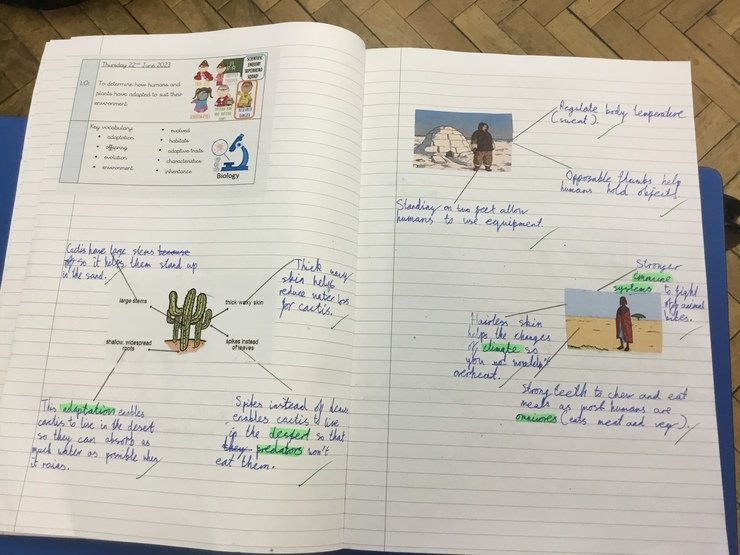 Thursday 22nd June 2023
LO:
To determine how humans and
plants have adapted to suit their
environment
SCIENTIFIC
ENQUIRY
SUPERHERO
SQUAD!
Key vocabulary
• adaptation
• offspring
• evolution
• environment
• evolved
• habitats
• adaptive traits
• characteristics
• inheritance
Biology
Cactis have large stems because
so it helps them stand up
in the sand.
Thick waxy
skin helps
reduce water loss
for cactis.
large stems
thick waxy skin
shallow, widespread
roots
spikes instead
of leaves
This adaptation enables
cactis to live in the desert
so they can absorb as
much water as possible when
it rains.
Spikes instead of leaves
enables cactis to live
in the desert so that
they predators won't
eat them.
Regulate body temperature
(sweat).
Opposable thumbs help
humans hold objects.
Standing on two feet allow
humans to use equipment.
Stronger
immune
systems to fight
off animal
bites.
Hairless skin
helps the changes
of climate so
you not
overheat.
Strong teeth to chew and eat
meals as most humans are
omnivores (eats meat and veg).